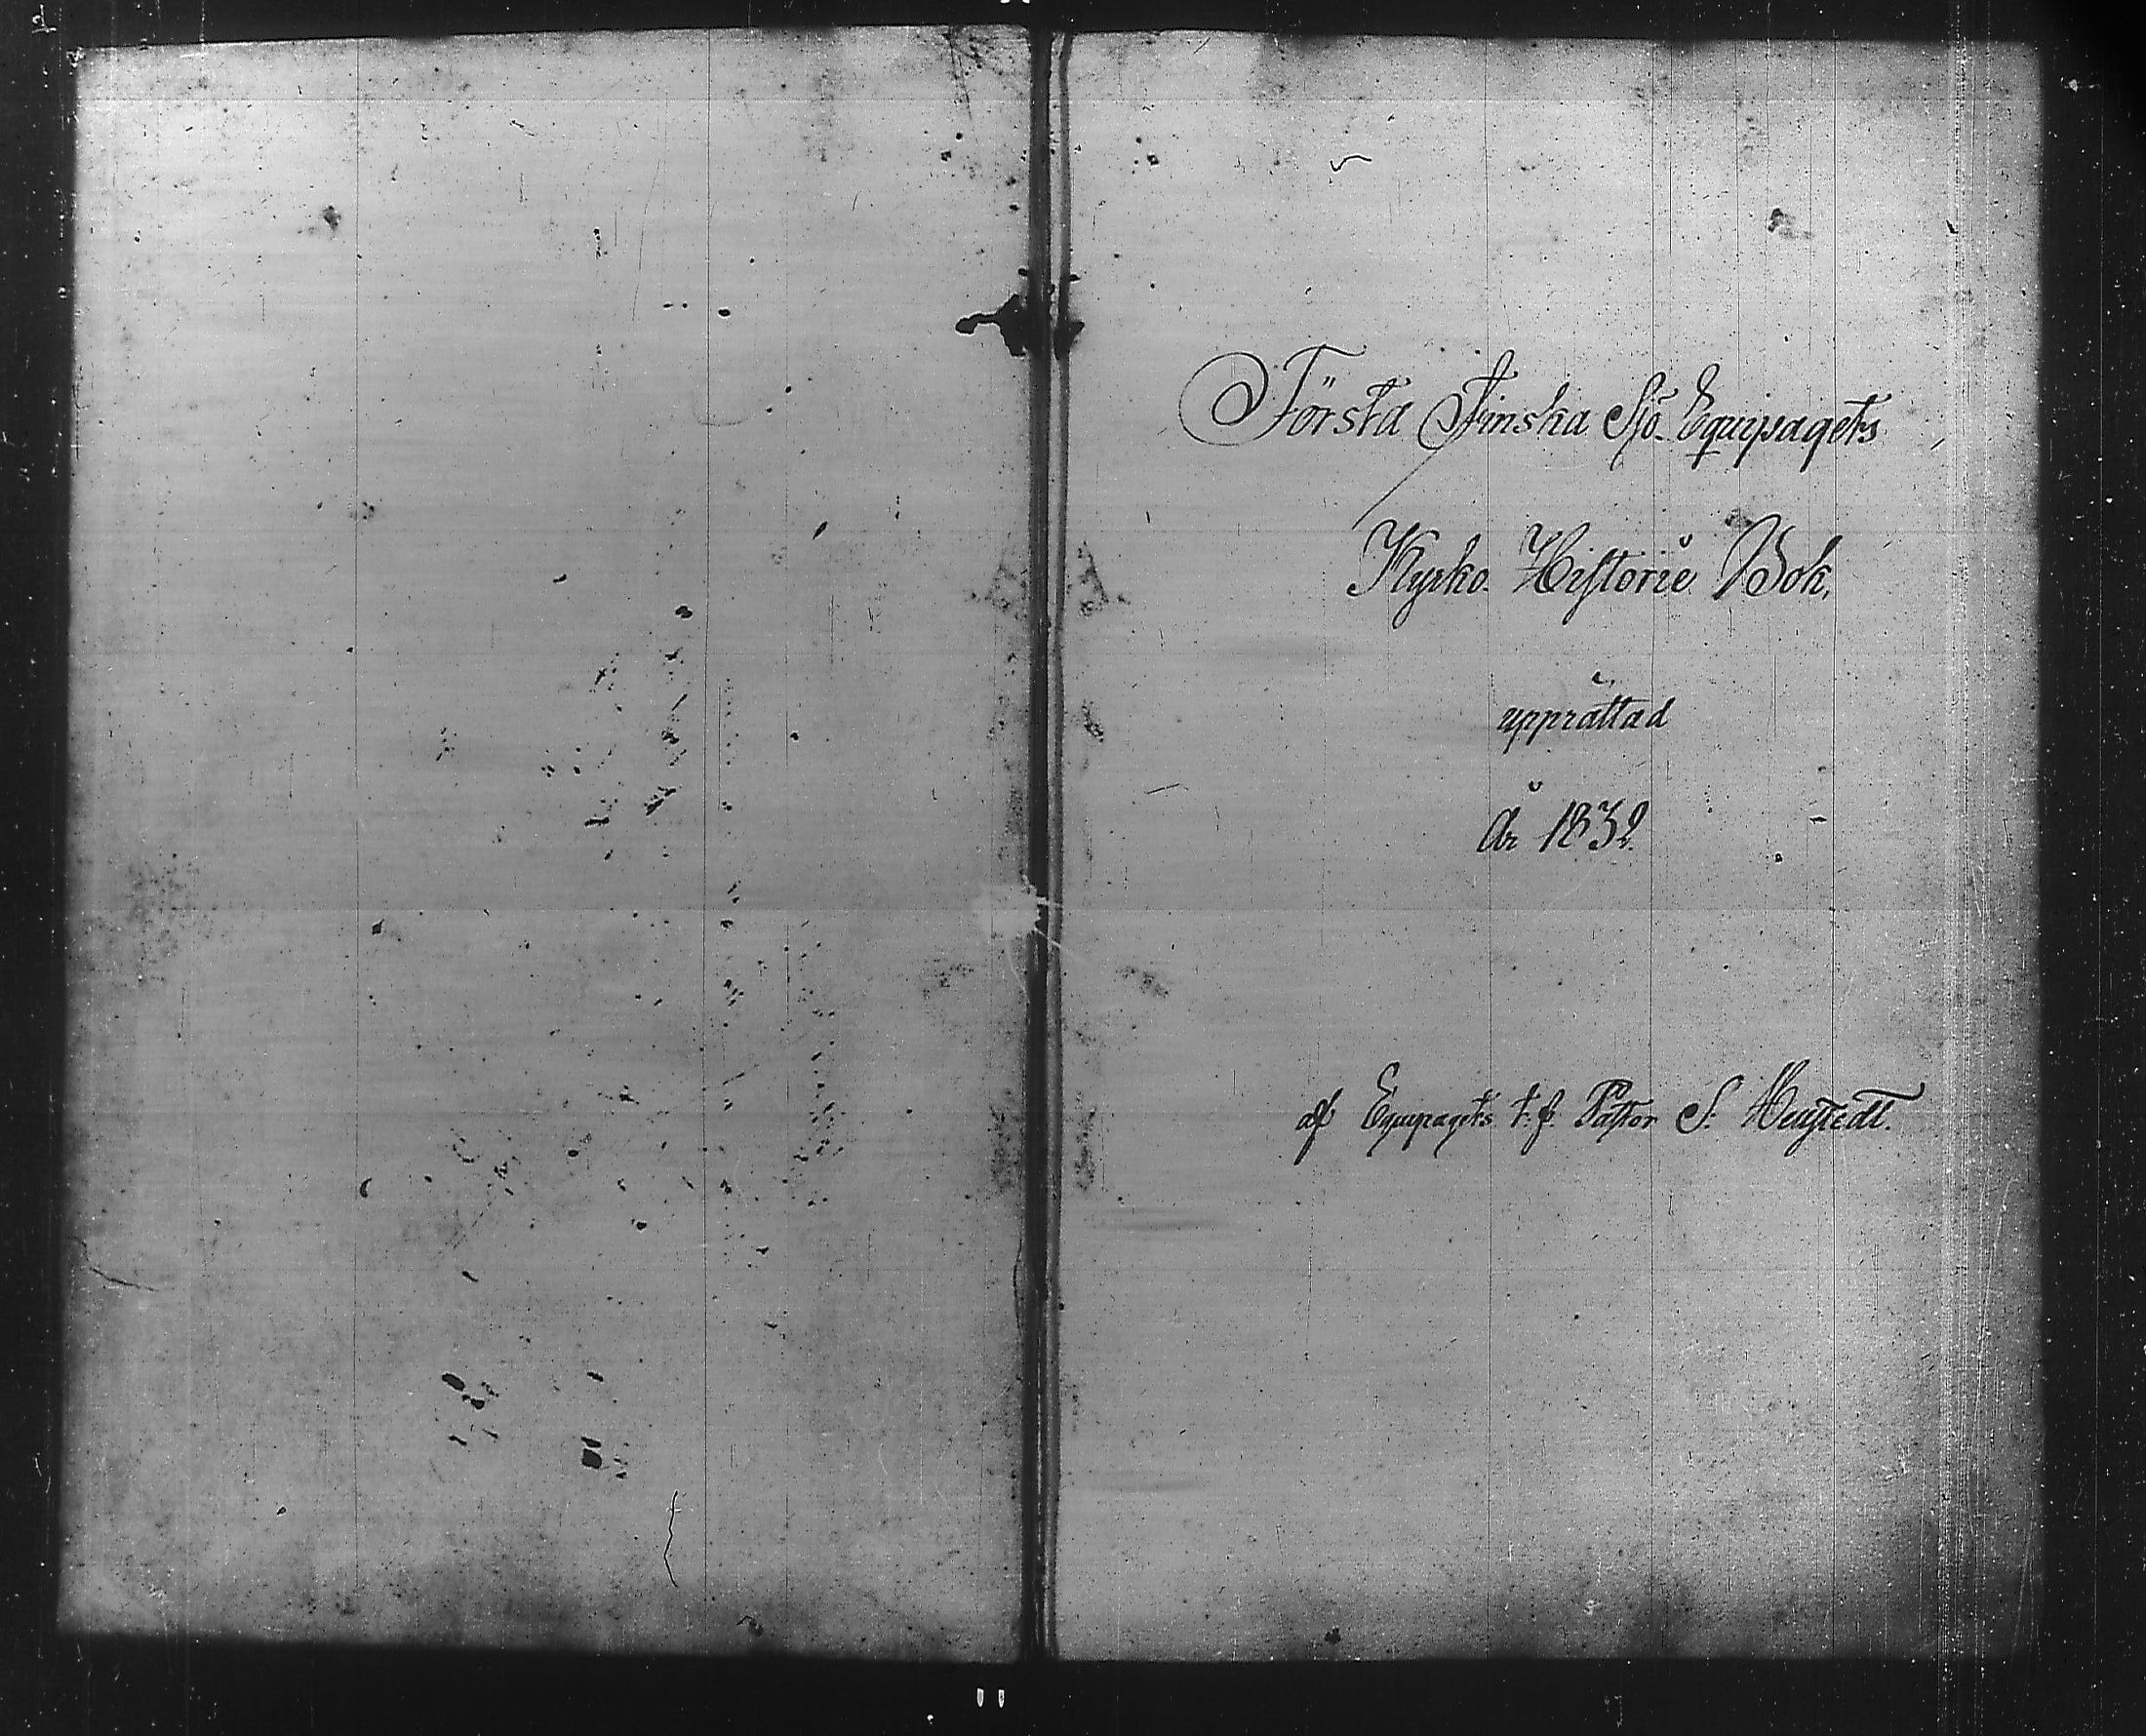 Första Finska Sjö-Equipagets
Kyrko-Historie Bok,
upprättad
År 1832.
af Equipagets t.f. Pastor S.